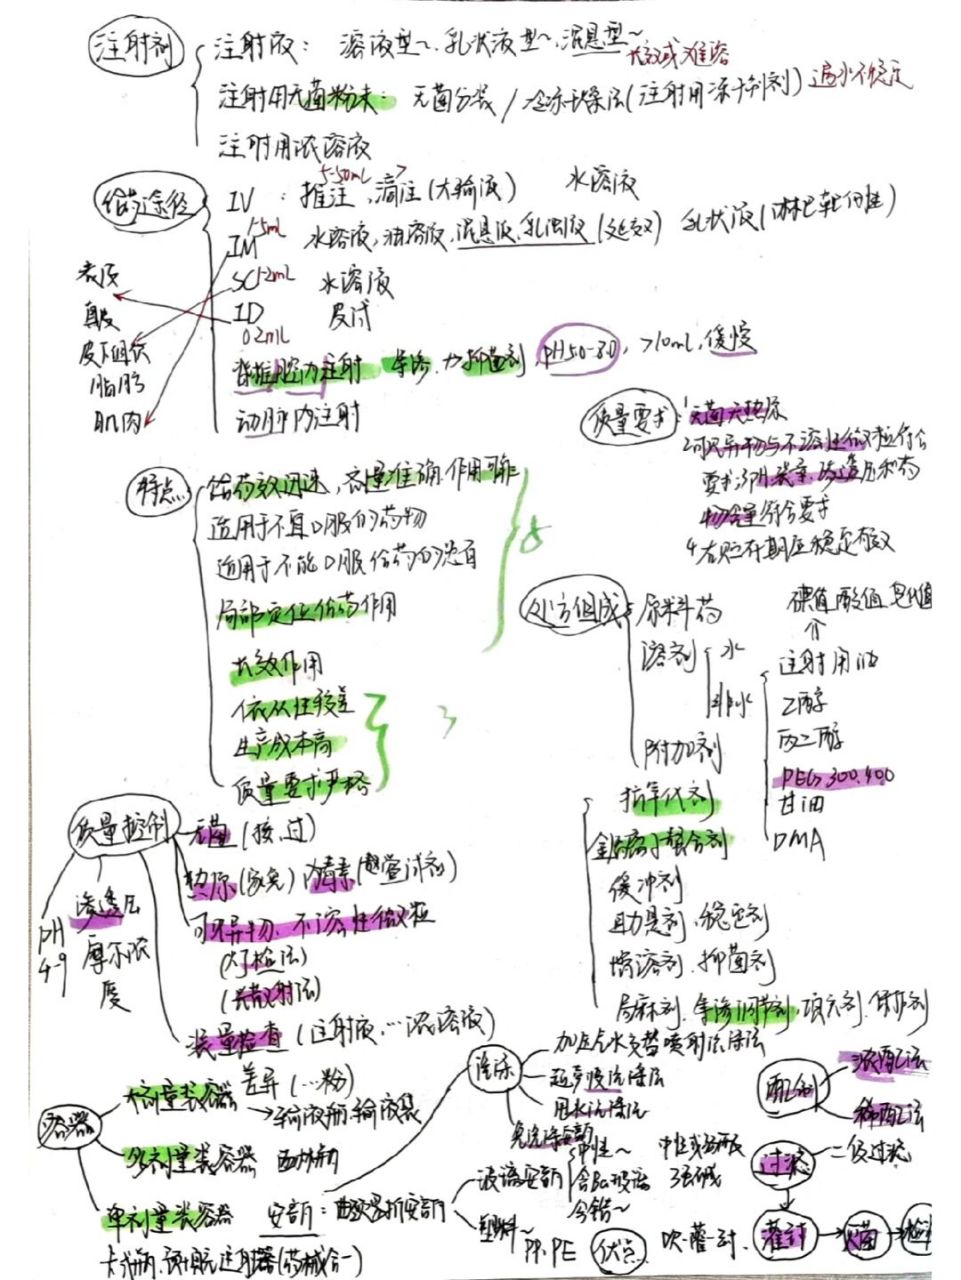 注射剂
注射液： 溶液型~、乳状液型~、混悬型~
长效或难溶
注射用无菌粉末： 无菌分装/冷冻干燥法(注射用冻干制剂) 遇水不稳定
注射用浓溶液
给药途径
5-50mL
IV ： 推注、滴注(大输液) 水溶液
1-5mL
IM 水溶液，油溶液，混悬液，乳浊液(延效) 乳状液(淋巴靶向性)
SC 1-2mL 水溶液
ID 皮试
0.2mL
表皮
真皮
皮下组织
脂肪
肌肉
脊椎腔内注射 等渗、抑菌剂，pH5.0-8.0，>10mL，缓慢
动脉内注射
质量要求：
1无菌无热原
2可见异物与不溶性微粒符合
要求 3pH、装量、渗透压和药
物含量符合要求
4在贮存期应稳定有效
特点
给药效迅速，剂量准确、作用可靠
适用于不宜口服的药物
适用于不能口服给药的患者
局部定位给药作用
长效作用
依从性较差
生产成本高
质量要求严格
处方组成
原料药
溶剂 水
非水
碘值 酸值 皂化值
注射用油
乙醇
丙二醇
PEG 300、400
甘油
DMA
附加剂
抗氧化剂
金属离子螯合剂
缓冲剂
助悬剂、稳定剂
增溶剂、抑菌剂
局麻剂、等渗调节剂、填充剂、保护剂
质量控制
无菌(接、过)
热原(家兔) 内毒素(鲎试剂)
可见异物、不溶性微粒
(灯检法)
(光散射法)
装量检查(注射液…浓溶液)
差异(…粉)
pH
4-9
渗透压
摩尔浓
度
容器
大剂量装容器 →输液瓶、输液袋
多剂量装容器 西林瓶
单剂量装容器 安瓿：曲颈易折安瓿
卡式瓶、预填充注射器(药械合一)
洗涤
加压气水交替喷射洗涤法
超声波洗涤法
甩水洗涤法
免洗涤安瓿
玻璃安瓿 中性~ 中性或弱酸
含Ba玻璃 强碱
含锆~
塑料~
PP、PE
优点 吹-灌-封、
配制
浓配法
稀配法
过滤 二级过滤
灌封→灭菌→